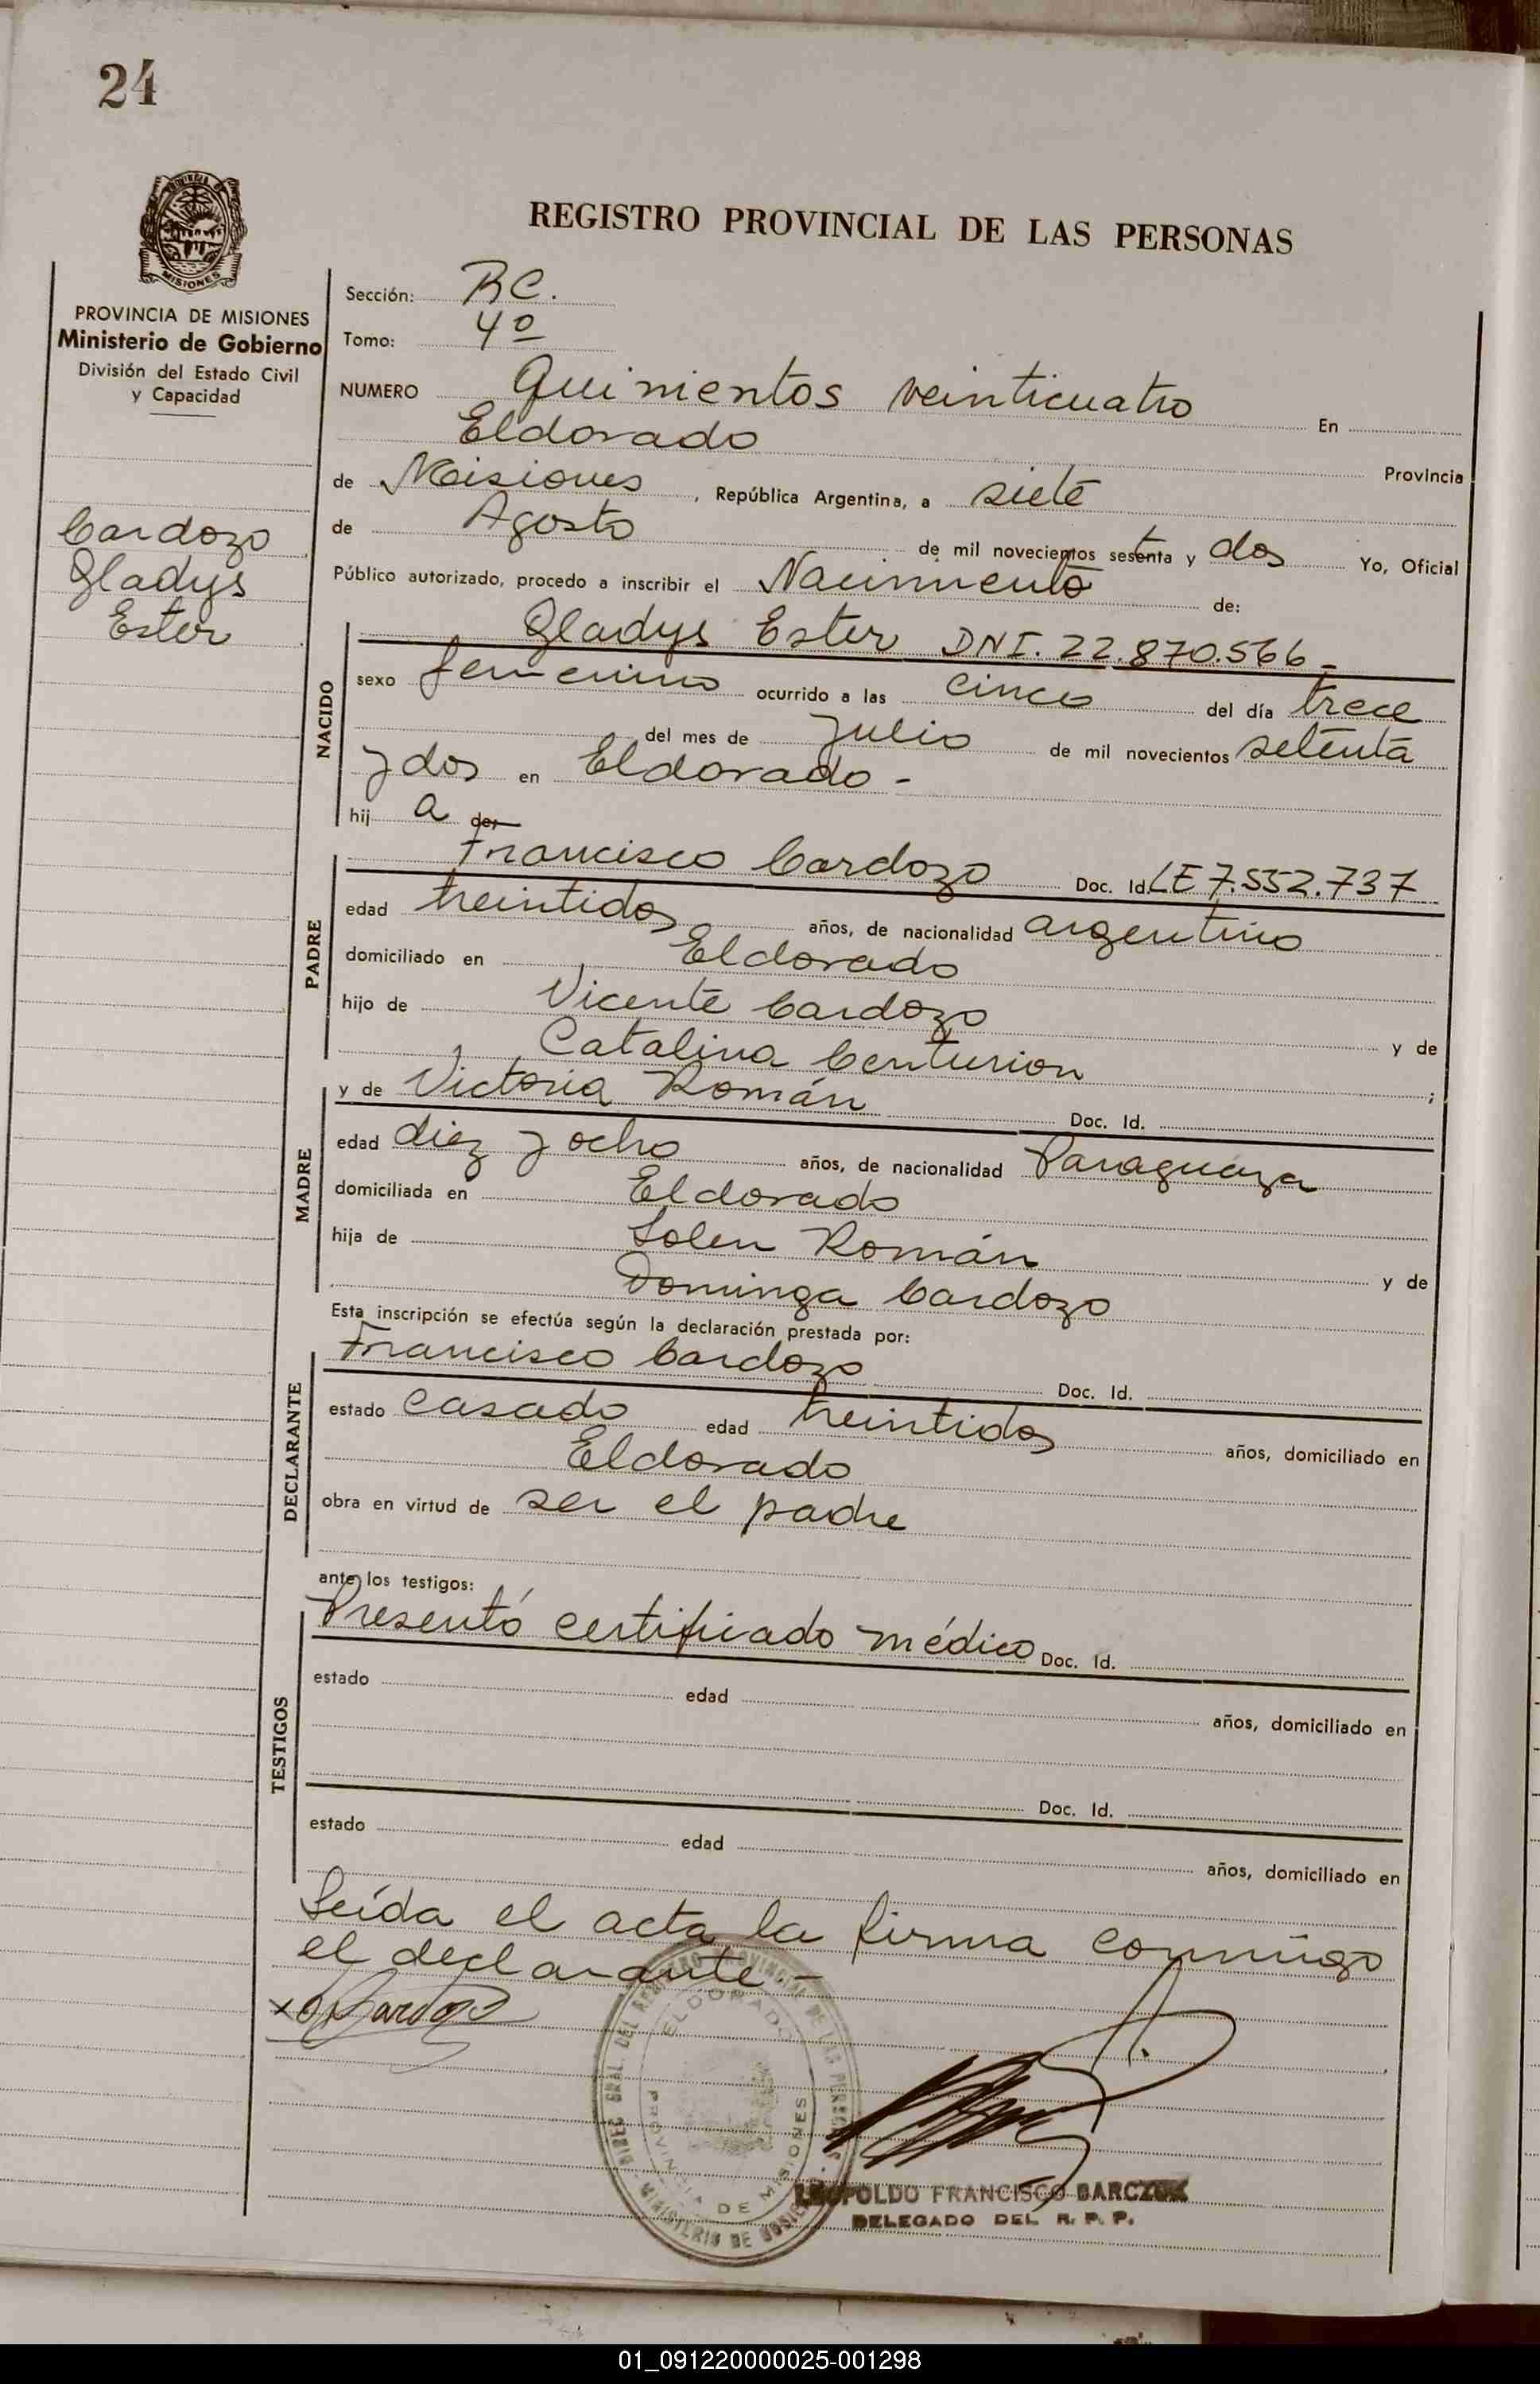 24
PROVINCIA DE MISIONES
Ministerio de Gobierno
División del Estado Civil
y Capacidad
Cardozo
Gladys
Ester
REGISTRO PROVINCIAL DE LAS PERSONAS
Sección: RC.
Tomo: 4º
NUMERO Quinientos veinticuatro En
Eldorado Provincia
de Misiones, República Argentina, a siete
de Agosto de mil novecientos setenta y dos Yo, Oficial
Público autorizado, procedo a inscribir el Nacimiento de:
NACIDO
Gladys Ester DNI. 22.870.566-
sexo femenino ocurrido a las cinco del día trece
del mes de Julio de mil novecientos setenta
y dos en Eldorado-
hij a de:
PADRE
Francisco Cardozo Doc. Id. LE 7.552.737
edad treintidos años, de nacionalidad argentino
domiciliado en Eldorado
hijo de Vicente Cardozo y de
Catalina Centurion ;
MADRE
y de Victoria Román Doc. Id.
edad diez y ocho años, de nacionalidad Paraguaya
domiciliada en Eldorado
hija de Solen Román y de
Dominga Cardozo
Esta inscripción se efectúa según la declaración prestada por:
DECLARANTE
Francisco Cardozo Doc. Id.
estado casado edad treintidos años, domiciliado en
Eldorado
obra en virtud de ser el padre
ante los testigos:
TESTIGOS
Presentó certificado médico Doc. Id.
estado edad años, domiciliado en
Doc. Id.
estado edad años, domiciliado en
Leída el acta la firma conmigo
el declarante-
ELDORADO
PROVINCIA DE MISIONES
LEOPOLDO FRANCISCO BARCZUK
DELEGADO DEL R. P. P.
01_091220000025-001298